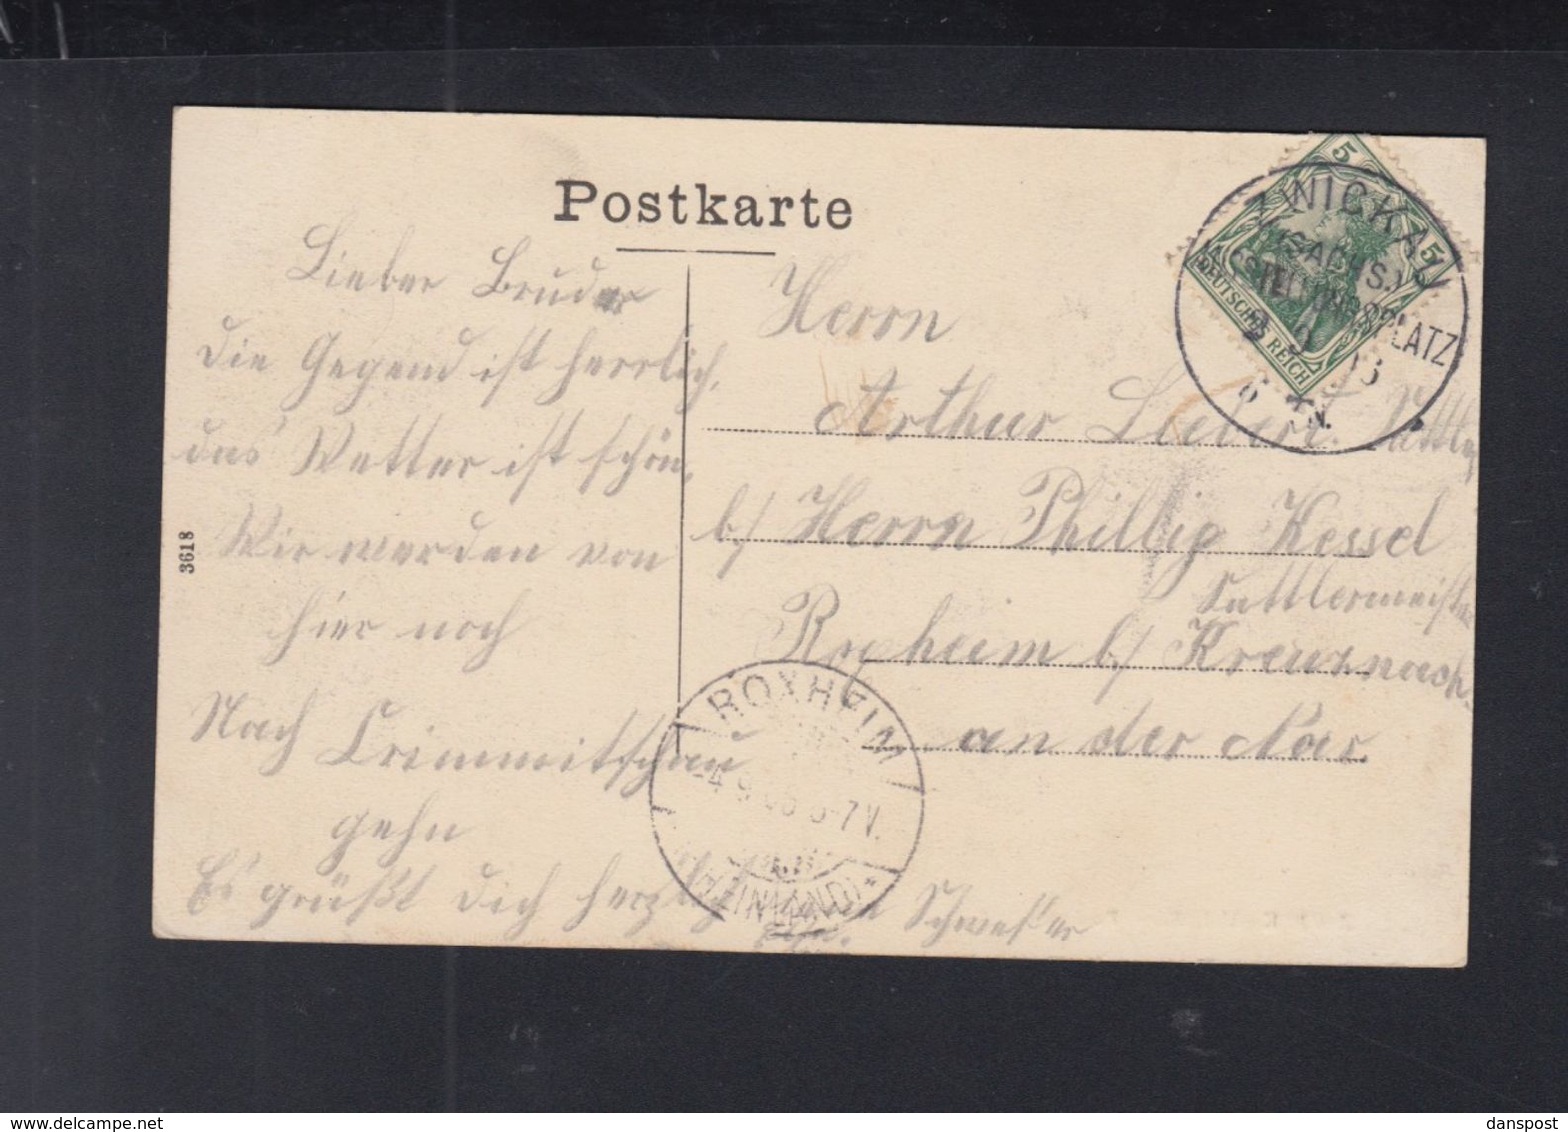 Postkarte
Lieber Bruder
die Gegend ist herrlich,
das Wetter ist schön,
Wir werden von
hier noch
Nach Crimmitschau
gehn
Es grüßt Dich herzlich
Schwester
3618
Herrn
Arthur
b/ Herrn Phillip Kessel
Sattlermeister
Roxheim b/ Kreuznach
an der Nar
5 5
DEUTSCHES REICH
ZWICKAU
(SACHS.)
PLATZ
ROXHEIM
4 9 06 6-7V.
(RHEINLAND)
danspost